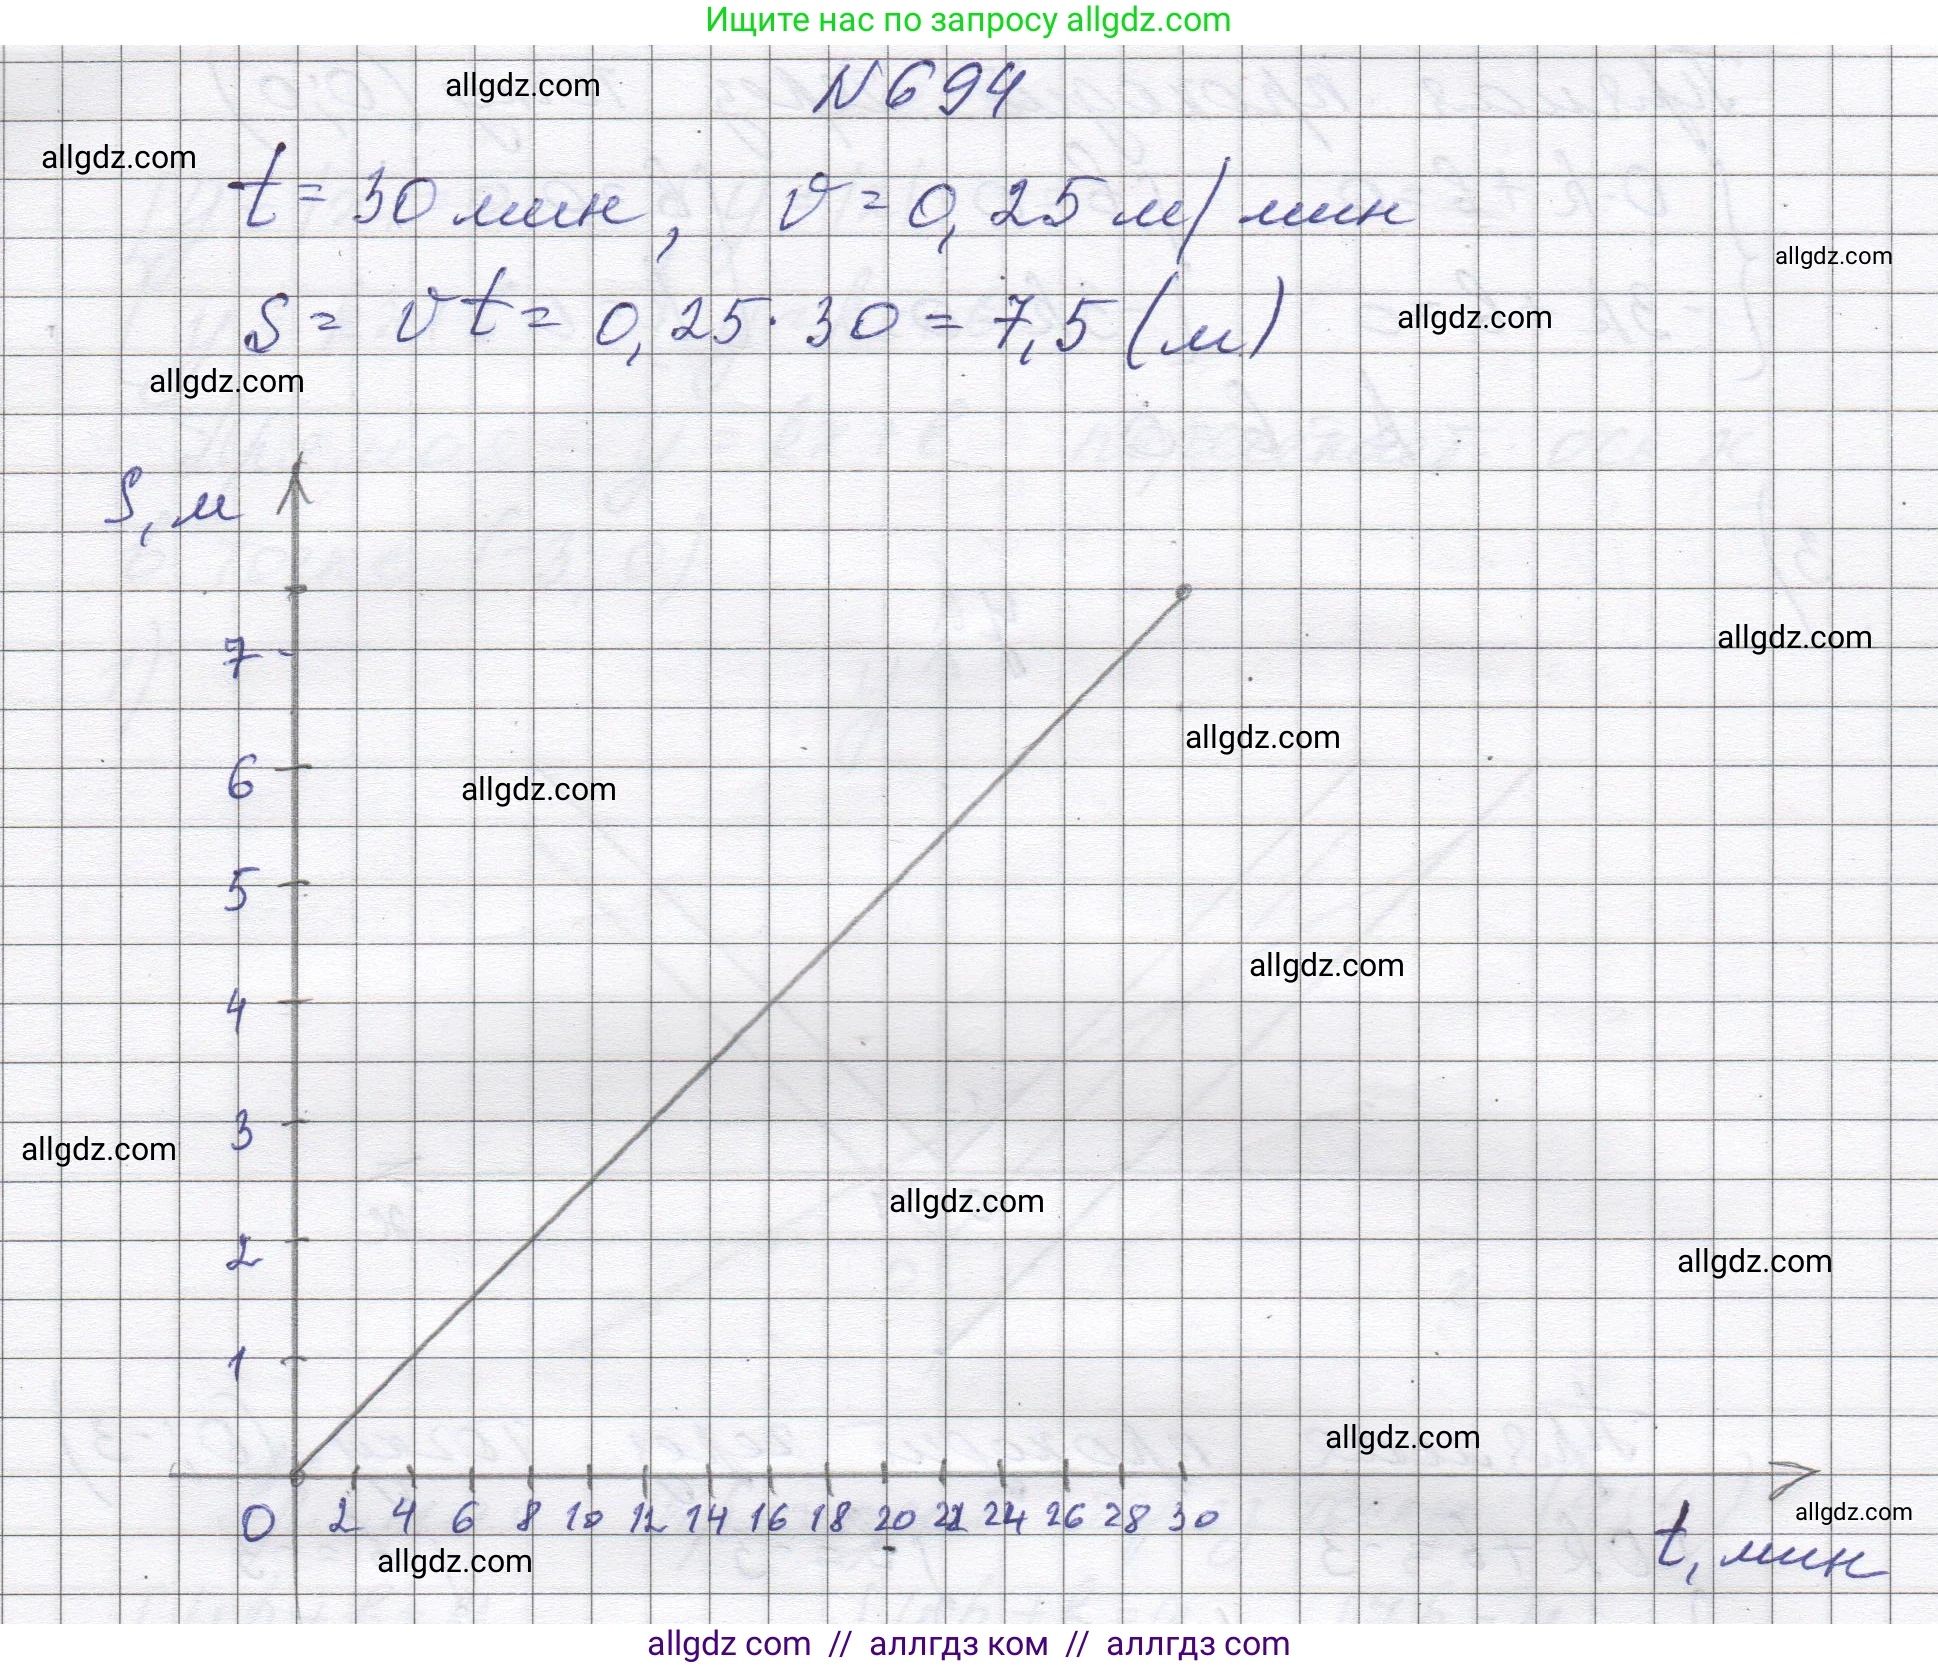 Ищите нас по запросу allgdz.com
allgdz.com
N 694
allgdz.com
t = 30 мин, v = 0,25 м/мин
allgdz.com
S = vt = 0,25 · 30 = 7,5 (м)
allgdz.com
allgdz.com
S, м
7
allgdz.com
allgdz.com
6
allgdz.com
5
allgdz.com
4
3
allgdz.com
allgdz.com
2
allgdz.com
1
allgdz.com
0 2 4 6 8 10 12 14 16 18 20 22 24 26 28 30
allgdz.com
t, мин
allgdz.com
allgdz com // аллгдз ком // аллгдз com